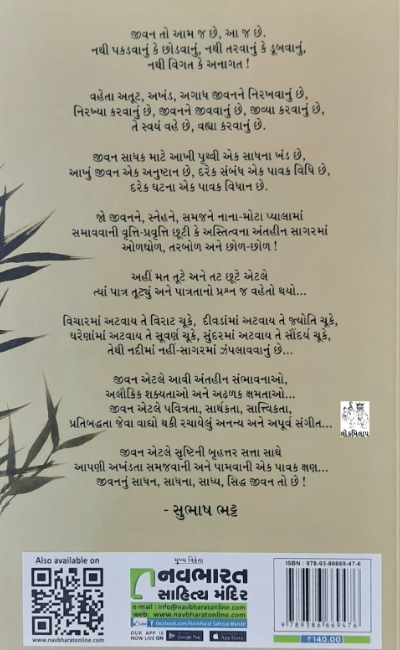 જીવન તો આમ જ છે, આ જ છે.
નથી પકડવાનું કે છોડવાનું, નથી તરવાનું કે ડૂબવાનું,
નથી વિગત કે અનાગત !
વહેતા અતૂટ, અખંડ, અગાધ જીવનને નિરખવાનું છે,
નિરખ્યા કરવાનું છે, જીવનને જીવવાનું છે, જીવ્યા કરવાનું છે,
તે સ્વયં વહે છે, વહ્યા કરવાનું છે.
જીવન સાધક માટે આખી પૃથ્વી એક સાધના ખંડ છે,
આખું જીવન એક અનુષ્ઠાન છે, દરેક સંબંધ એક પાવક વિધિ છે,
દરેક ઘટના એક પાવક વિધાન છે.
જો જીવનને, સ્નેહને, સમજને નાના-મોટા પ્યાલામાં
સમાવવાની વૃત્તિ-પ્રવૃત્તિ છૂટી કે અસ્તિત્વના અંતહીન સાગરમાં
ઓળઘોળ, તરબોળ અને છોળ-છોળ !
અહીં મત તૂટે અને તટ છૂટે એટલે
ત્યાં પાત્ર તૂટ્યું અને પાત્રતાનો પ્રશ્ન જ વહેતો થયો...
વિચારમાં અટવાય તે વિરાટ ચૂકે, દીવડાંમાં અટવાય તે જ્યોતિ ચૂકે,
ઘરેણાંમાં અટવાય તે સૂવર્ણ ચૂકે, સુંદરમાં અટવાય તે સૌંદર્ય ચૂકે,
તેથી નદીમાં નહીં-સાગરમાં ઝંપલાવવાનું છે...
જીવન એટલે આવી અંતહીન સંભાવનાઓ,
અલૌકિક શક્યતાઓ અને અઢળક ક્ષમતાઓ...
જીવન એટલે પવિત્રતા, સાર્થકતા, સાત્ત્વિકતા,
પ્રતિબદ્ધતા જેવા વાદ્યો થકી રચાયેલું અનન્ય અને અપૂર્વ સંગીત...
જીવન એટલે સૃષ્ટિની બૃહત્તર સત્તા સાથે
આપણી અખંડતા સમજવાની અને પામવાની એક પાવક ક્ષણ...
જીવનનું સાધન, સાધના, સાધ્ય, સિદ્ધ જીવન તો છે !
- સુભાષ ભટ્ટ
લોકમિલાપ
Also available on
મુખ્ય વિક્રેતા
નવભારત
સાહિત્ય મંદિર
e-mail : info@navbharatonline.com
web: www.navbharatonline.com
facebook.com/Navbharat Sahitya Mandir
OUR APP IS
NOW LIVE ON
Google Play
App Store
ISBN : 978-93-86669-47-6
9 789386 669476
₹140.00